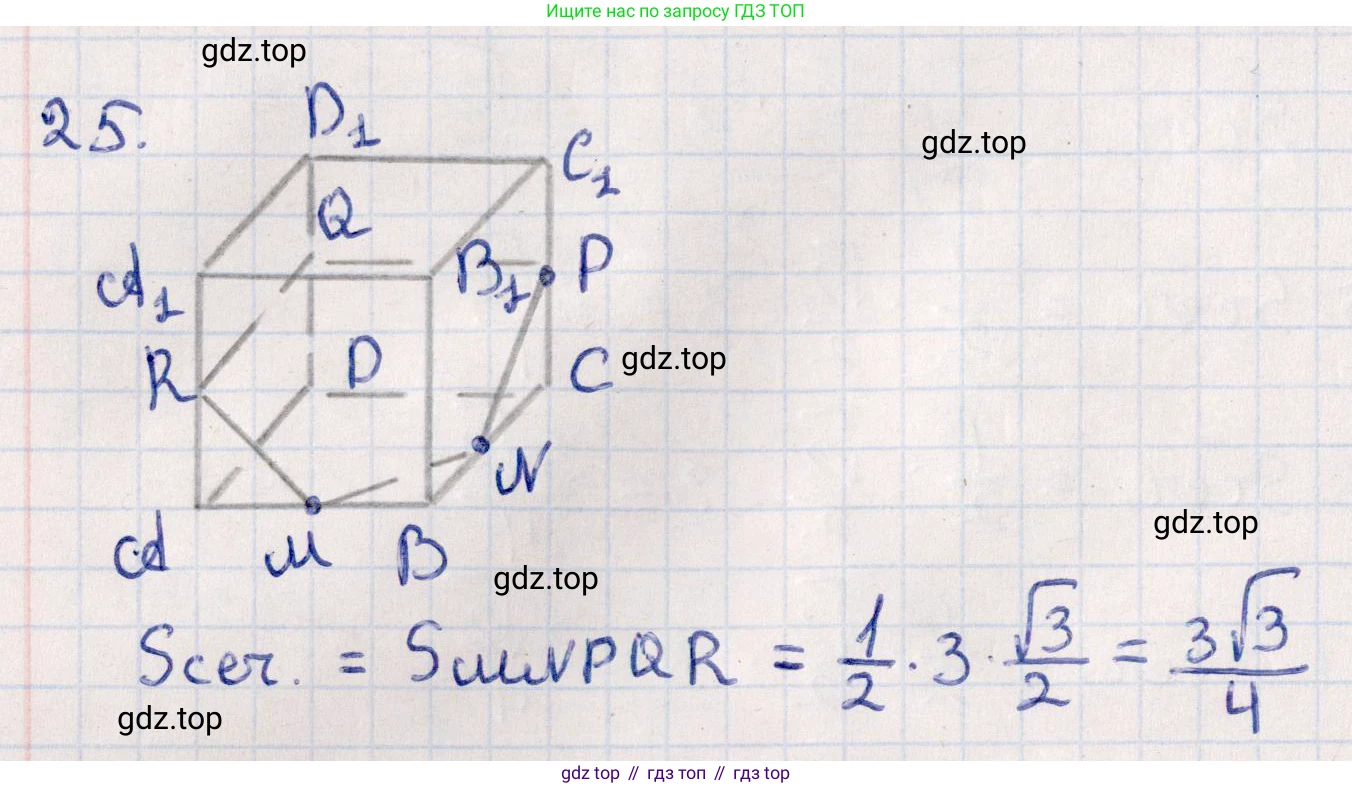 Ищите нас по запросу ГДЗ ТОП
gdz.top
25.
D₁
C₁
gdz.top
Q
A₁
B₁
P
R
D
C
gdz.top
N
A
M
B
gdz.top
gdz.top
Sсеч. = SMNPQR = 1/2 · 3 · √3/2 = 3√3/4
gdz.top
gdz top // гдз топ // gdz top